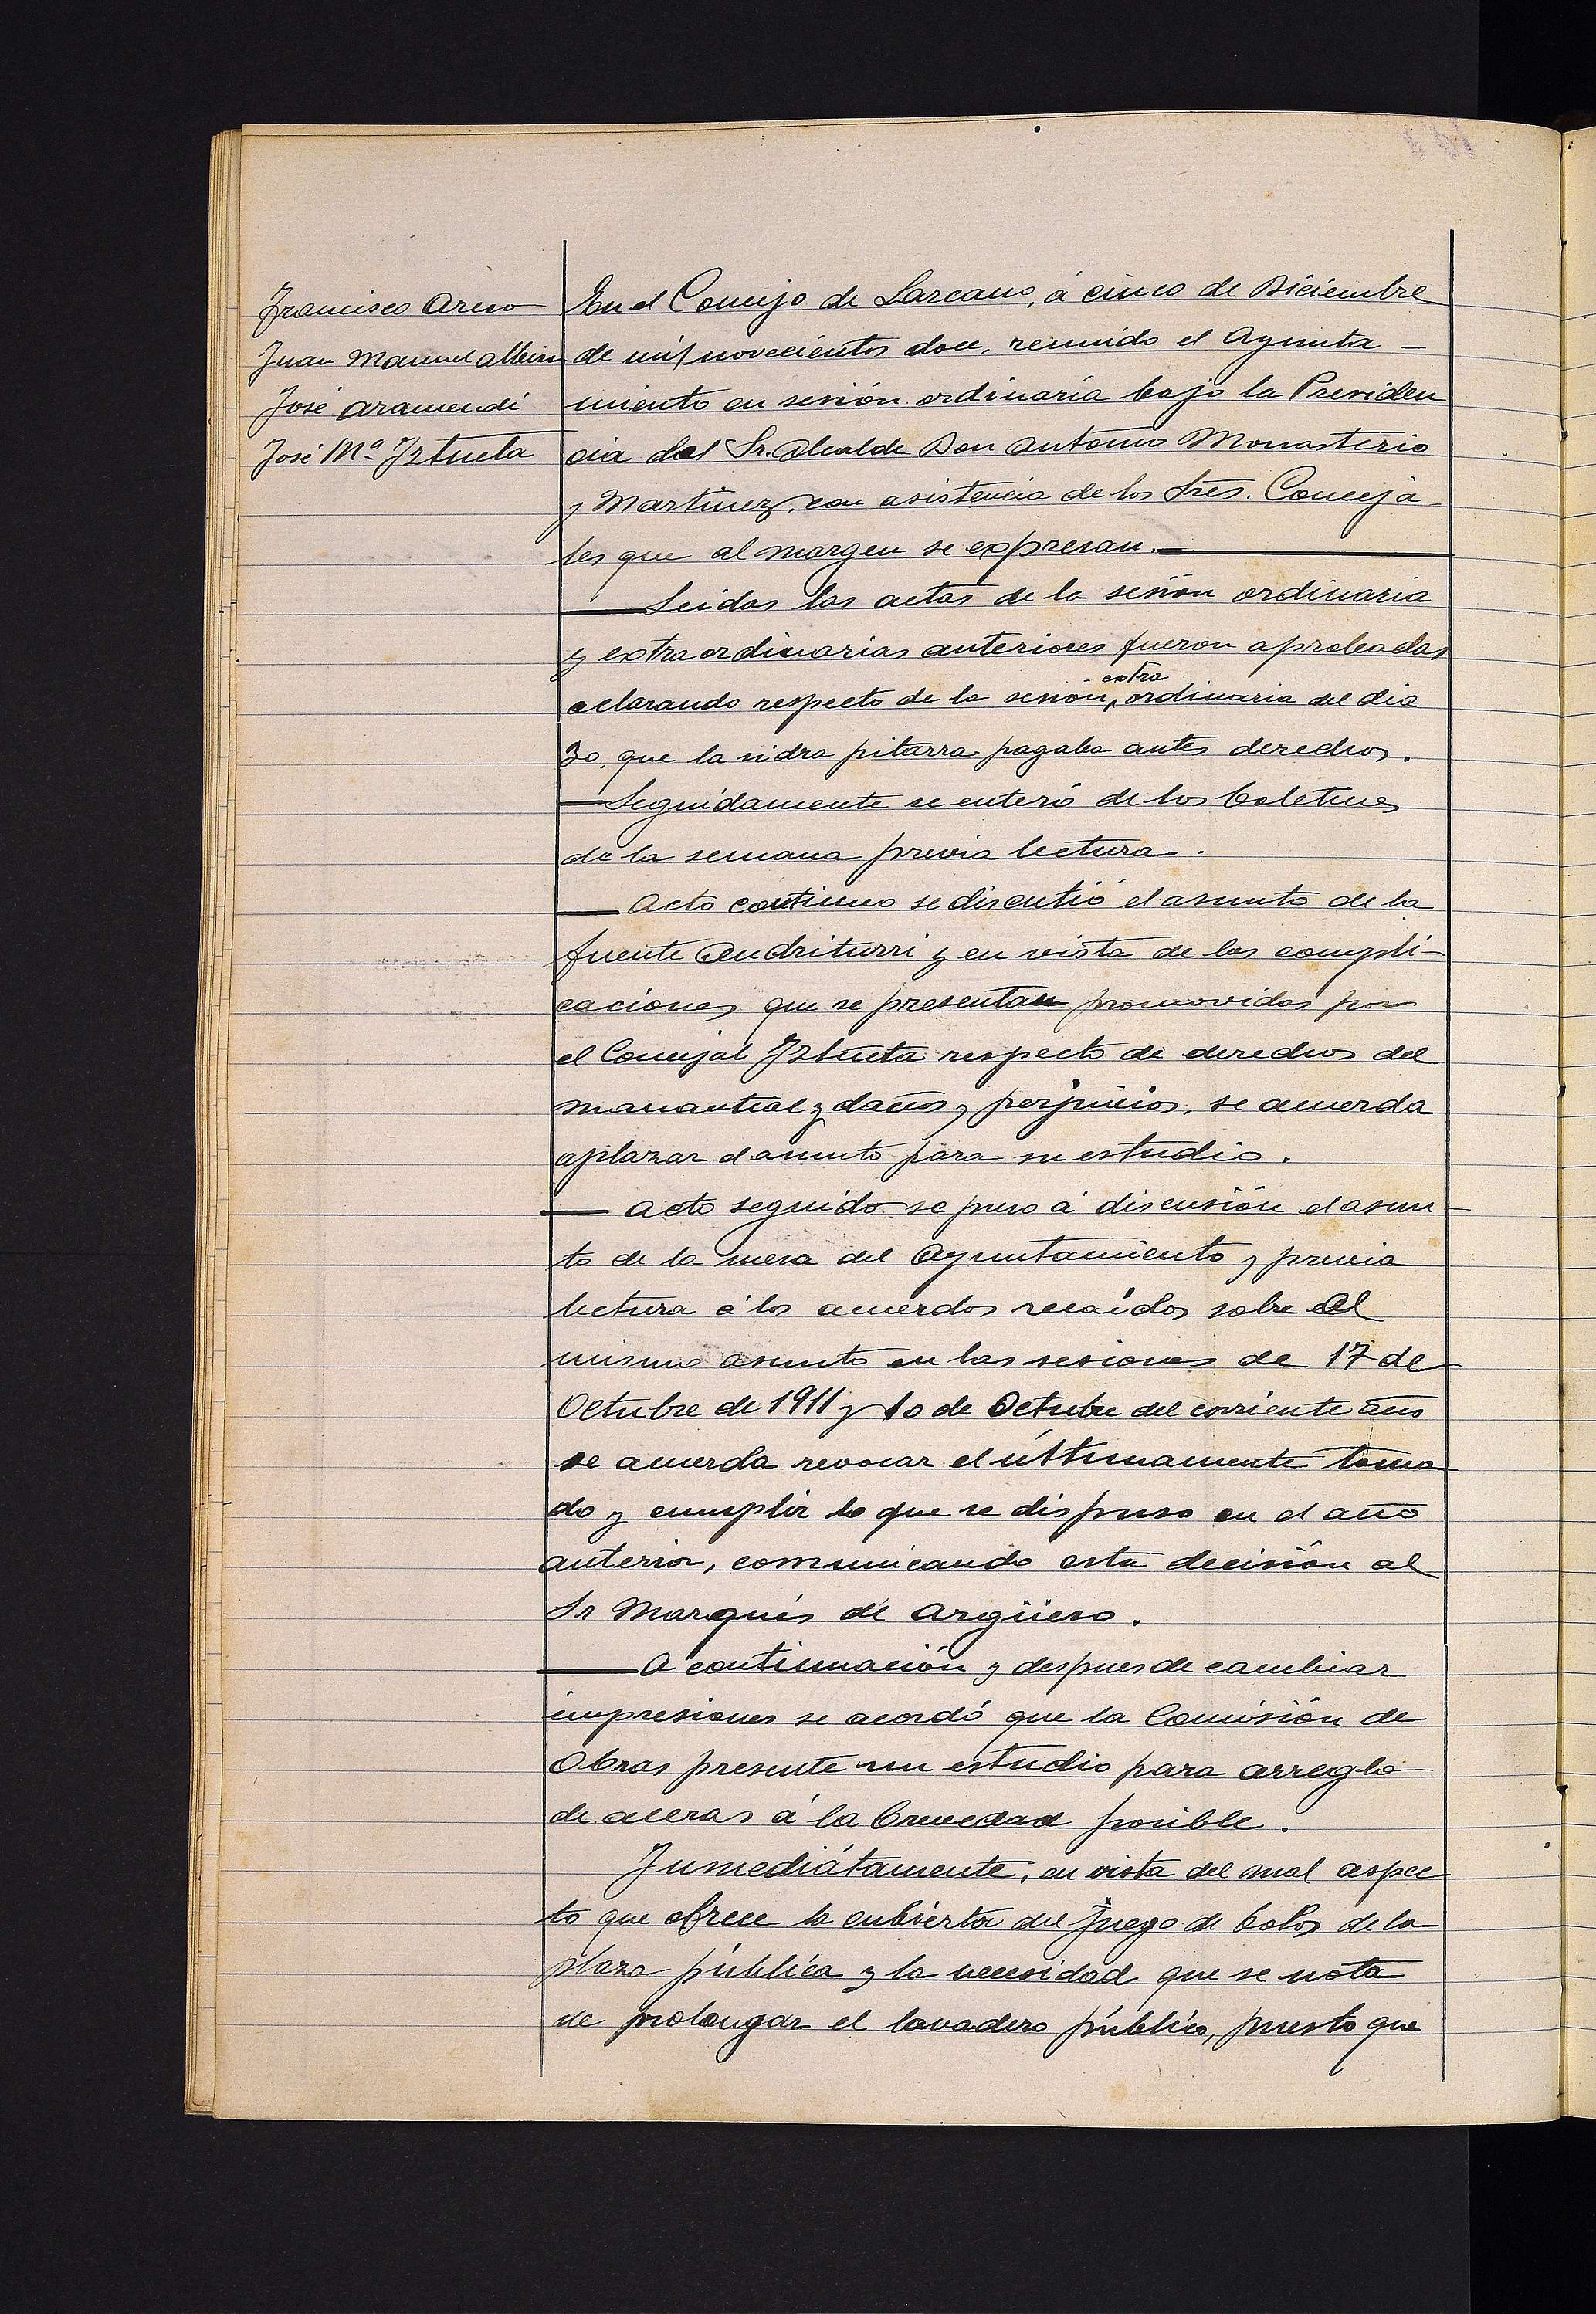 Francisco Areso
Juan Manuel Albisu
José Aramendi
José Mª Iztueta
En el Concejo de Lazcano, á cinco de Diciembre
de mil novecientos doce, reunido el Ayunta-
miento en sesión ordinaria bajo la Presiden
cia del Sr. Alcalde Don Antonio Monasterio
y Martinez, con asistencia de los Sres. Conceja
les que al margen se expresan.
Leidas las actas de la sesión ordinaria
y extraordinarias anteriores fueron aprobadas
aclarando respecto de la sesión extraordinaria del dia
30, que la sidra pitarra pagaba antes derechos.
Seguidamente se enteró de los boletines
de la semana previa lectura.
Acto continuo se discutió el asunto de la
fuente Andriturri y en vista de las compli-
caciones que se presentan promovidas por
el Concejal Iztueta respecto de derechos del
manantial y daños y perjuicios, se acuerda
aplazar el asunto para su estudio.
Acto seguido se puso á discusión el asun-
to de la mesa del Ayuntamiento y previa
lectura á los acuerdos recaídos sobre el
mismo asunto en las sesiones de 17 de
Octubre de 1911 y 10 de Octubre del corriente año
se acuerda revocar el últimamente toma
do y cumplir lo que se dispuso en el año
anterior, comunicando esta decisión al
Sr Marqués de Argüeso.
A continuación y despues de cambiar
impresiones se acordó que la Comisión de
Obras presente un estudio para arreglo
de aceras á la brevedad posible.
Inmediátamente, en vista del mal aspec
to que ofrece la cubierta del juego de bolos de la
plaza pública y la necesidad que se nota
de prolongar el lavadero público, puesto que